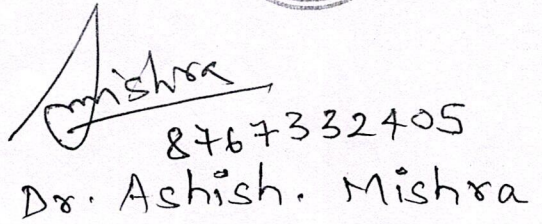 Amishra
8767332405
Dr. Ashish. Mishra